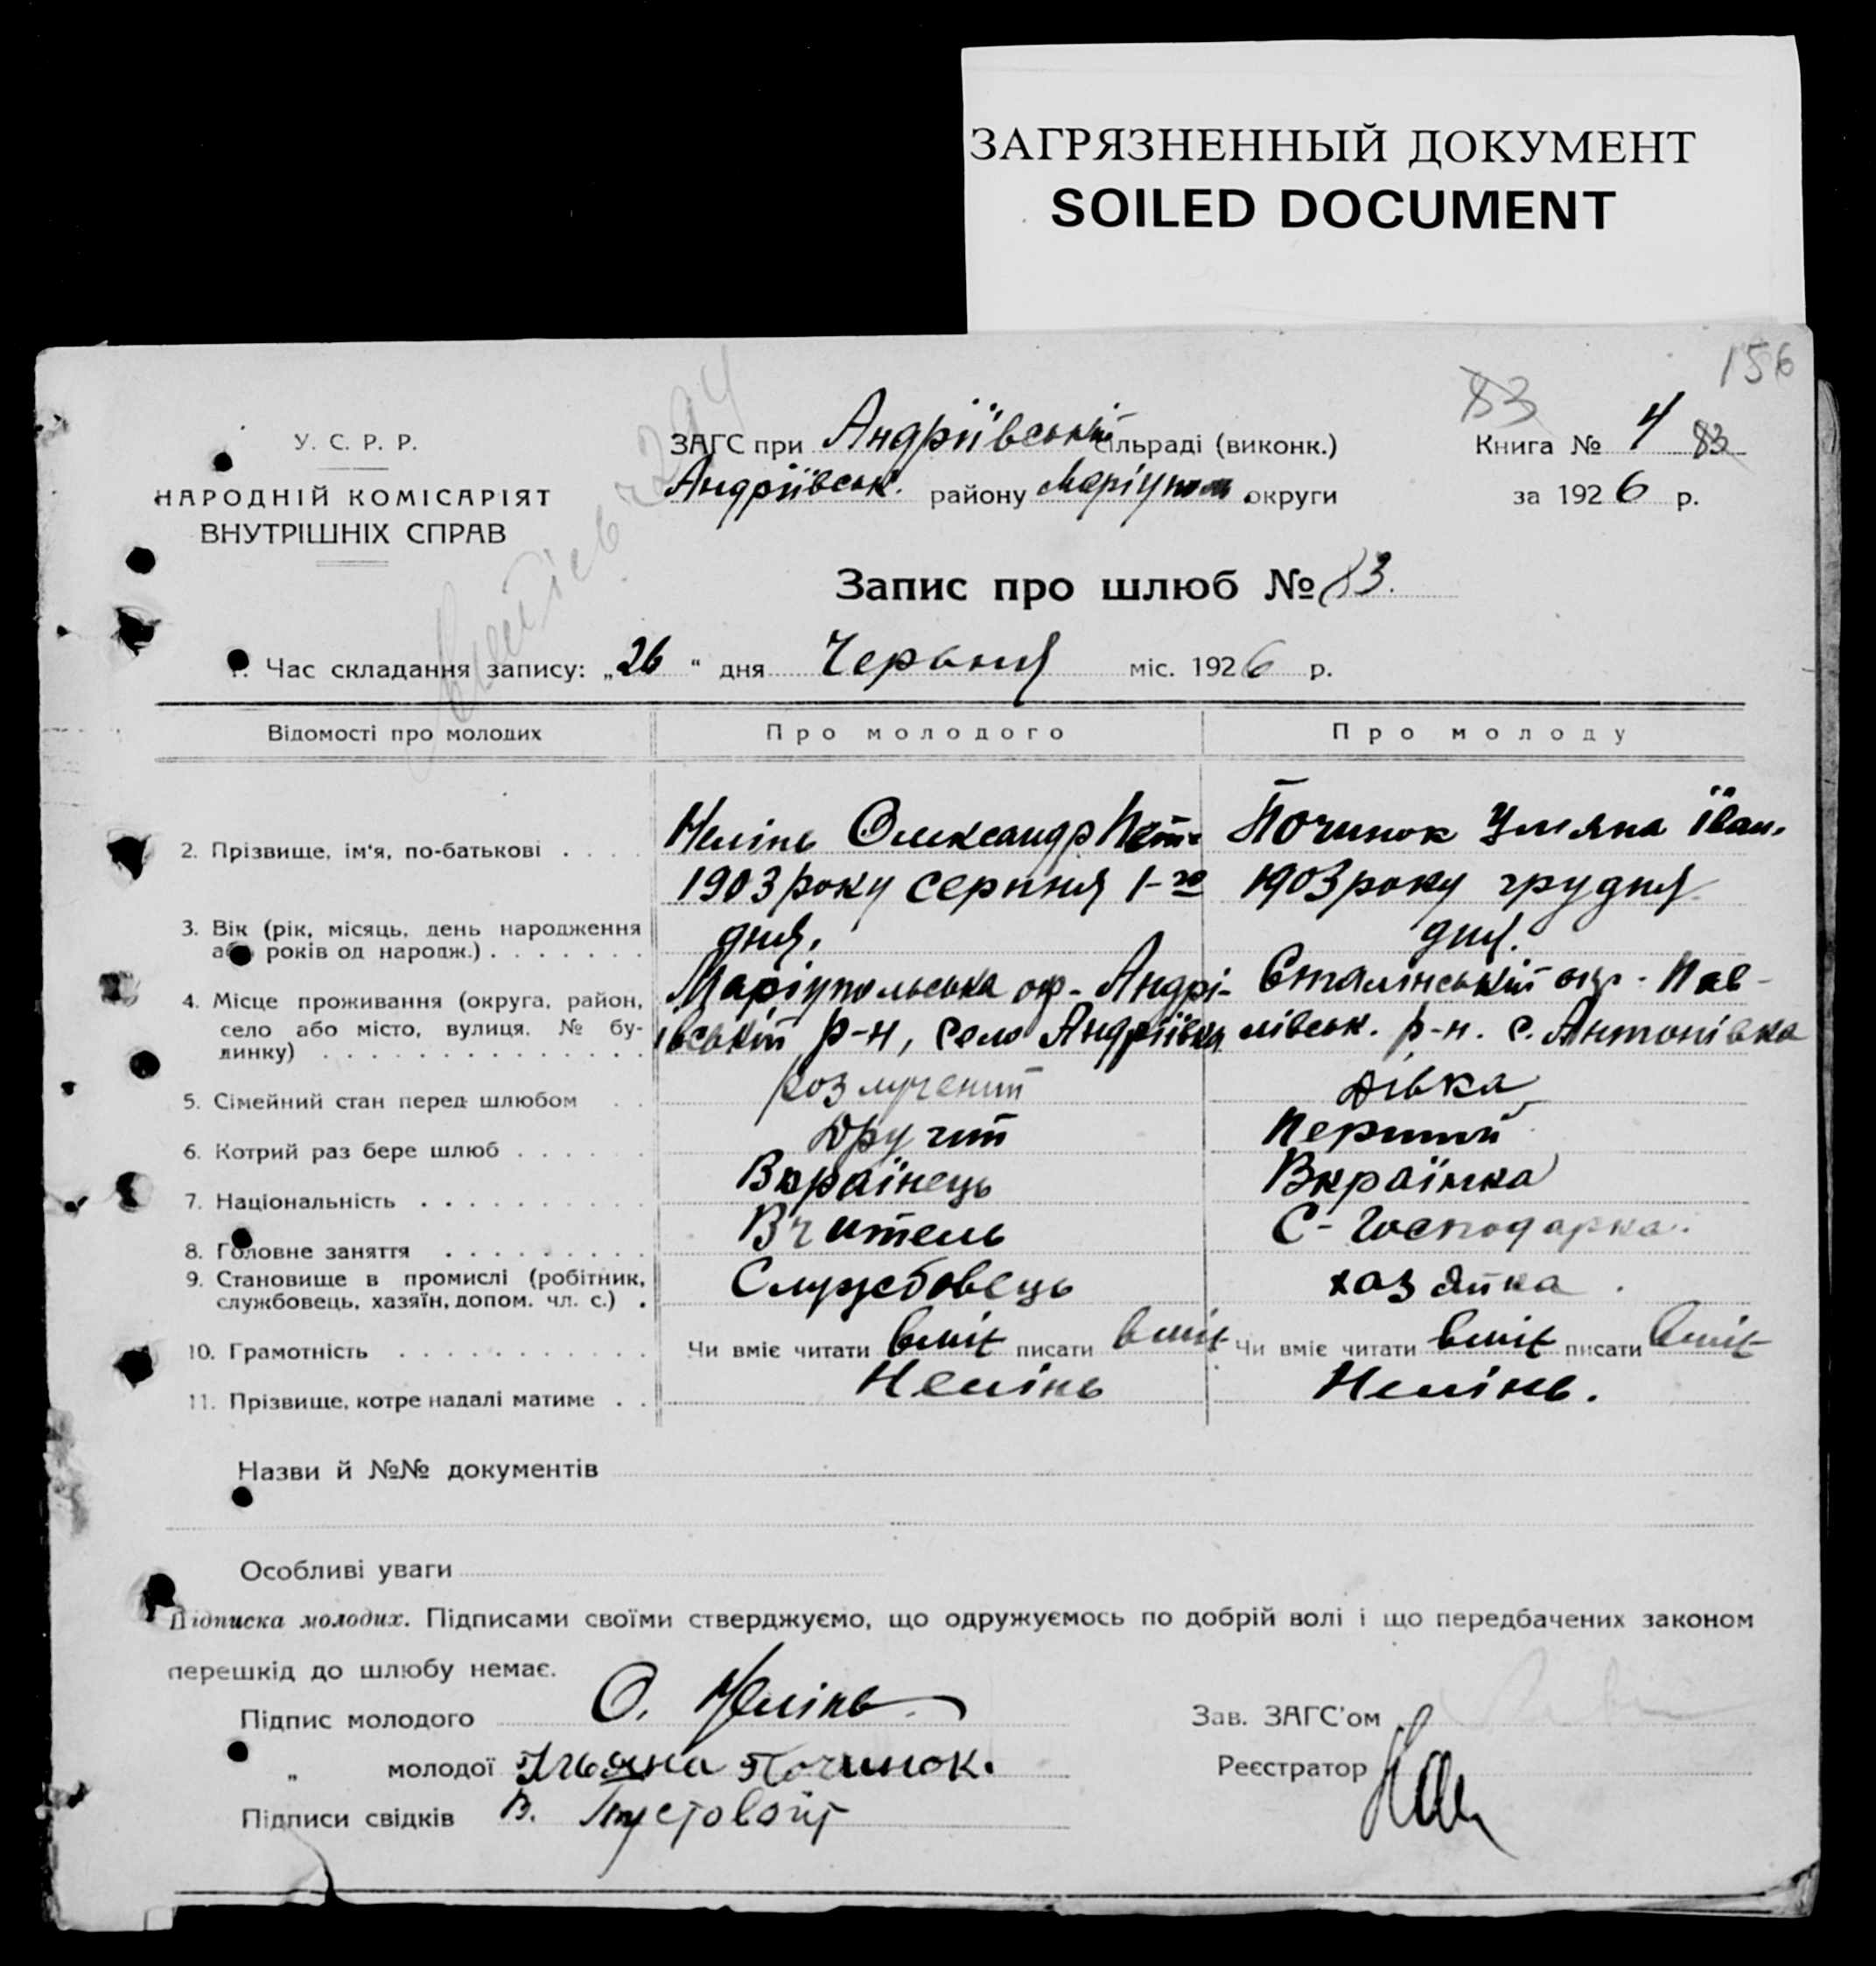 ЗАГРЯЗНЕННЫЙ ДОКУМЕНТ
SOILED DOCUMENT
156
83
У. С. Р. Р.
НАРОДНІЙ КОМІСАРІЯТ
ВНУТРІШНІХ СПРАВ
ЗАГС при Андріївській сільраді (виконк.)
Андріївськ. району Маріупол. округи
Книга № 4 83
за 1926 р.
Запис про шлюб № 83.
1. Час складання запису: „26“ дня Червня міс. 1926 р.
Відомості про молодих
Про молодого
Про молоду
2. Прізвище, ім'я, по-батькові . . . .
Нелінь Олександр Петр.
Починок Уляна Іван.
3. Вік (рік, місяць, день народження
або років од народж.) . . . . . . .
1903 року серпня 1-го
дня.
1903 року грудня
дня.
4. Місце проживання (округа, район,
село або місто, вулиця. № бу-
динку) . . . . . . . . . . . . . .
Маріупольська окр- Андрі-
ївський р-н, село Андріївка
Сталінській окр. - Пав-
лівськ. р-н. с. Антонівка
5. Сімейний стан перед шлюбом . .
Розлучений
Дівка
6. Котрий раз бере шлюб . . . . . .
Другий
Перший
7. Національність . . . . . . . . . .
Вкраїнець
Вкраїнка
8. Головне заняття . . . . . . . . .
Вчитель
С-Господарка.
9. Становище в промислі (робітник,
службовець, хазяїн, допом. чл. с.) .
Службовець
хазяйка.
10. Грамотність . . . . . . . . . . .
Чи вміє читати вміє писати вміє
Чи вміє читати вміє писати вміє
11. Прізвище, котре надалі матиме . .
Нелінь
Нелінь.
Назви й №№ документів
Особливі уваги
Підписка молодих. Підписами своїми стверджуємо, що одружуємось по добрій волі і що передбачених законом
перешкід до шлюбу немає.
Підпис молодого О. Нелінь
„ молодої Ульяна Починок.
Підписи свідків В. Пустовойт
Зав. ЗАГС'ом
Реєстратор